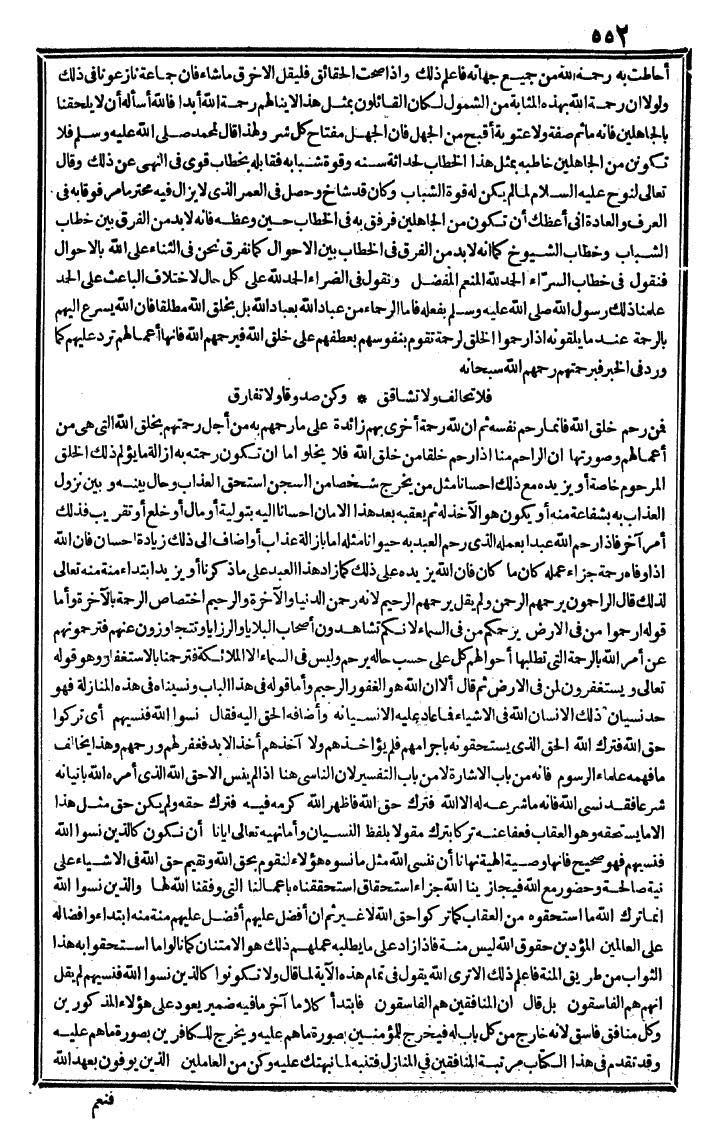 ٥٥٢
أحاطت به رحمة الله من جميع جهاته فاعلم ذلك واذا صحت الحقائق فليقل الاخرق ما شاء فان جماعة نازعونا فى ذلك
ولولا ان رحمة الله بهذه المثابة من الشمول لكان القائلون بمثل هذا لا ينالهم رحمة الله أبدا فالله أسأله أن لا يلحقنا
بالجاهلين فانه ما ثم صفة ولا عقوبة أقبح من الجهل فان الجهل مفتاح كل شر ولهذا قال لمحمد صلى الله عليه وسلم فلا
تكونن من الجاهلين خاطبه بمثل هذا الخطاب لحداثة سنه وقوة شبابه فقابله بخطاب قوى فى النهى عن ذلك وقال
تعالى لنوح عليه السلام لما لم يكن له قوة الشباب وكان قد شاخ وحصل فى العمر الذى لا يزال فيه محترما مرفوقا به فى
العرف والعادة انى أعظك أن تكون من الجاهلين فرفق به فى الخطاب حين وعظه فانه لابد من الفرق بين خطاب
الشباب وخطاب الشيوخ كما انه لابد من الفرق فى الخطاب بين الاحوال كما نفرق نحن فى الثناء على الله بالاحوال
فنقول فى خطاب السرّاء الحمد لله المنعم المفضل ونقول فى الضراء الحمد لله على كل حال لاختلاف الباعث على الحمد
علمنا ذلك رسول الله صلى الله عليه وسلم بفعله فاما الرحماء من عباد الله بعباد الله بل بخلق الله مطلقا فان الله يسرع اليهم
بالرحمة عندما يلقونه اذا رحموا الخلق لرحمة تقوم بنفوسهم بعطفهم على خلق الله فيرحمهم الله فانها أعمالهم ترد عليهم كما
ورد فى الخبر فبرحمتهم رحمهم الله سبحانه
فلا تخالف ولا تشاقق * وكن صدوقا ولا تفارق
فمن رحم خلق الله فانما رحم نفسه ثم ان لله رحمة أخرى بهم زائدة على ما رحمهم به من أجل رحمتهم بخلق الله التى هى من
أعمالهم وصورتها ان الراحم منا اذا رحم خلقا من خلق الله فلا يخلو اما ان تكون رحمته به ازالة ما يؤلم ذلك الخلق
المرحوم خاصة أو يزيده مع ذلك احسانا مثل من يخرج شخصا من السجن استحق العذاب وحال بينه وبين نزول
العذاب به بشفاعة منه أو يكون هو الآخذ له ثم يعقبه بعد هذا الامان احسانا اليه بتولية أو مال أو خلع أو تقريب فذلك
أمر آخر فاذا رحم الله عبدا بعمله الذى رحم العبد به حيوانا مثله اما بازالة عذاب أو اضاف الى ذلك زيادة احسان فان الله
اذا وفاه رحمة جزاء عمله كان ما كان فان الله يزيده على ذلك كما زاد هذا العبد على ما ذكرنا أو يزيد ابتداء منة منه تعالى
لذلك قال الراحمون يرحمهم الرحمن ولم يقل يرحمهم الرحيم لانه رحمن الدنيا والآخرة والرحيم اختصاص الرحمة بالآخرة وأما
قوله ارحموا من فى الارض يرحمكم من فى السماء لانكم تشاهدون أصحاب البلايا والرزايا وتتجاوزون عنهم فترحمونهم
عن أمر الله بالرحمة التى تطلبها أحوالهم كل على حسب حاله يرحم وليس فى السماء الا الملائكة فترحمنا بالاستغفار وهو قوله
تعالى ويستغفرون لمن فى الارض ثم قال ألا ان الله هو الغفور الرحيم وأما قوله فى هذا الباب ونسيناه فى هذه المنازلة فهو
حد نسيان ذلك الانسان الله فى الاشياء فما عاد عليه الا نسيانه وأضافه الحق اليه فقال نسوا الله فنسيهم أى تركوا
حق الله فترك الله الحق الذى يستحقونه باجرامهم فلم يؤاخذهم ولا آخذهم أخذ الابد فغفر لهم ورحمهم وهذا يخالف
ما فهمه علماء الرسوم فانه من باب الاشارة لا من باب التفسير لان الناسى هنا اذا لم ينس الا حق الله الذى أمره الله باتيانه
شرعا فقد نسى الله فانه ما شرعه له الا الله فترك حق الله فاظهر الله كرمه فيه فترك حقه ولم يكن حق مثل هذا
الا ما يستحقه وهو العقاب فعفا عنه تركا بترك مقولا بلفظ النسيان وأما نهيه تعالى ايانا أن نكون كالذين نسوا الله
فنسيهم فهو صحيح فانها وصية الهية نهانا أن ننسى الله مثل ما نسوه هؤلاء لنقوم بحق الله ونقيم حق الله فى الاشياء على
نية صالحة وحضور مع الله فيجازينا الله جزاء استحقاق استحققناه باعمالنا التى وفقنا الله لها والذين نسوا الله
انما ترك الله ما استحقوه من العقاب كما تركوا حق الله لا غير ثم ان أفضل عليهم أفضل عليهم منة منه ابتداء وافضاله
على العالمين المؤدين حقوق الله ليس منة فاذا زاد على ما يطلبه عملهم ذلك هو الامتنان كما نالوا ما استحقوا به هذا
الثواب من طريق المنة فاعلم ذلك الا ترى الله يقول فى تمام هذه الآية لما قال ولا تكونوا كالذين نسوا الله فنسيهم لم يقل
انهم هم الفاسقون بل قال ان المنافقين هم الفاسقون فابتدأ كلاما آخر ما فيه ضمير يعود على هؤلاء المذكورين
وكل منافق فاسق لانه خارج من كل باب له فيخرج للمؤمنين بصورة ما هم عليه ويخرج للكافرين بصورة ما هم عليه
وقد تقدم فى هذا الكتاب مرتبة المنافقين فى المنازل فتنبه لما نبهتك عليه وكن من العاملين الذين يوفون بعهد الله
فنعم